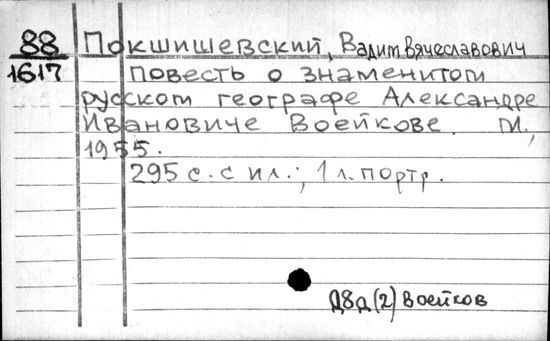 88 Покшишевский, Вадим Вячеславович
1617 Повесть о знаменитом
русском географе Александре
Ивановиче Воейкове. М.,
1955.
295 с. с ил.; 1 л. портр.
Д8д(2) Воейков